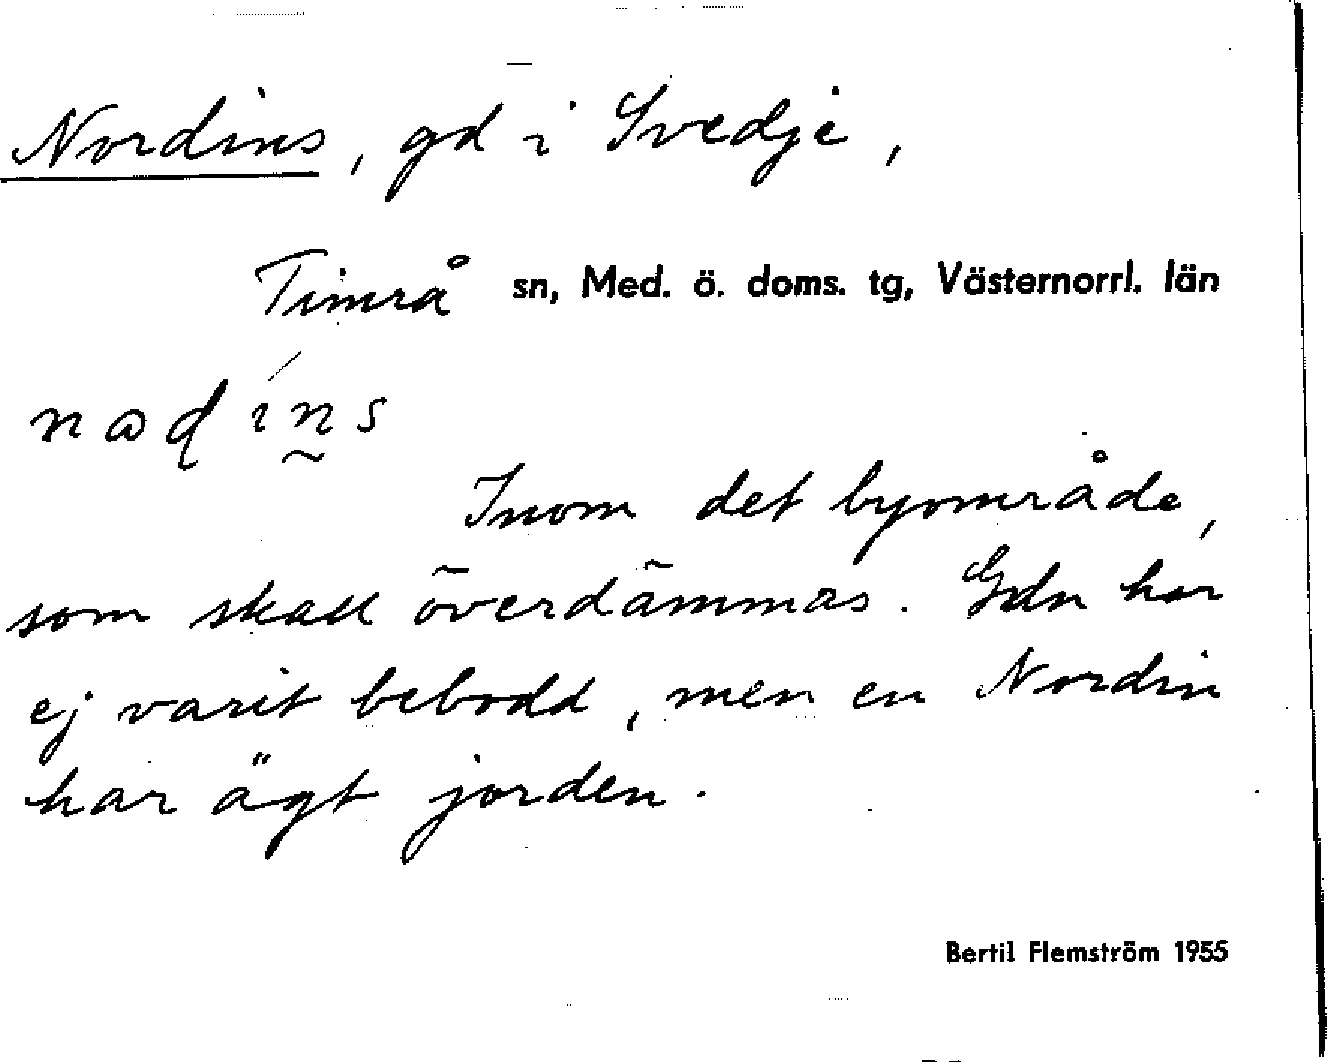 Nordins, gd i Svedje,
Timrå sn, Med. ö. doms. tg, Västernorrl. län
Inom det byområde,
som skall överdämmas. Gdn har
ej varit bebodd, men en Nordin
har ägt jorden.
Bertil Flemström 1955